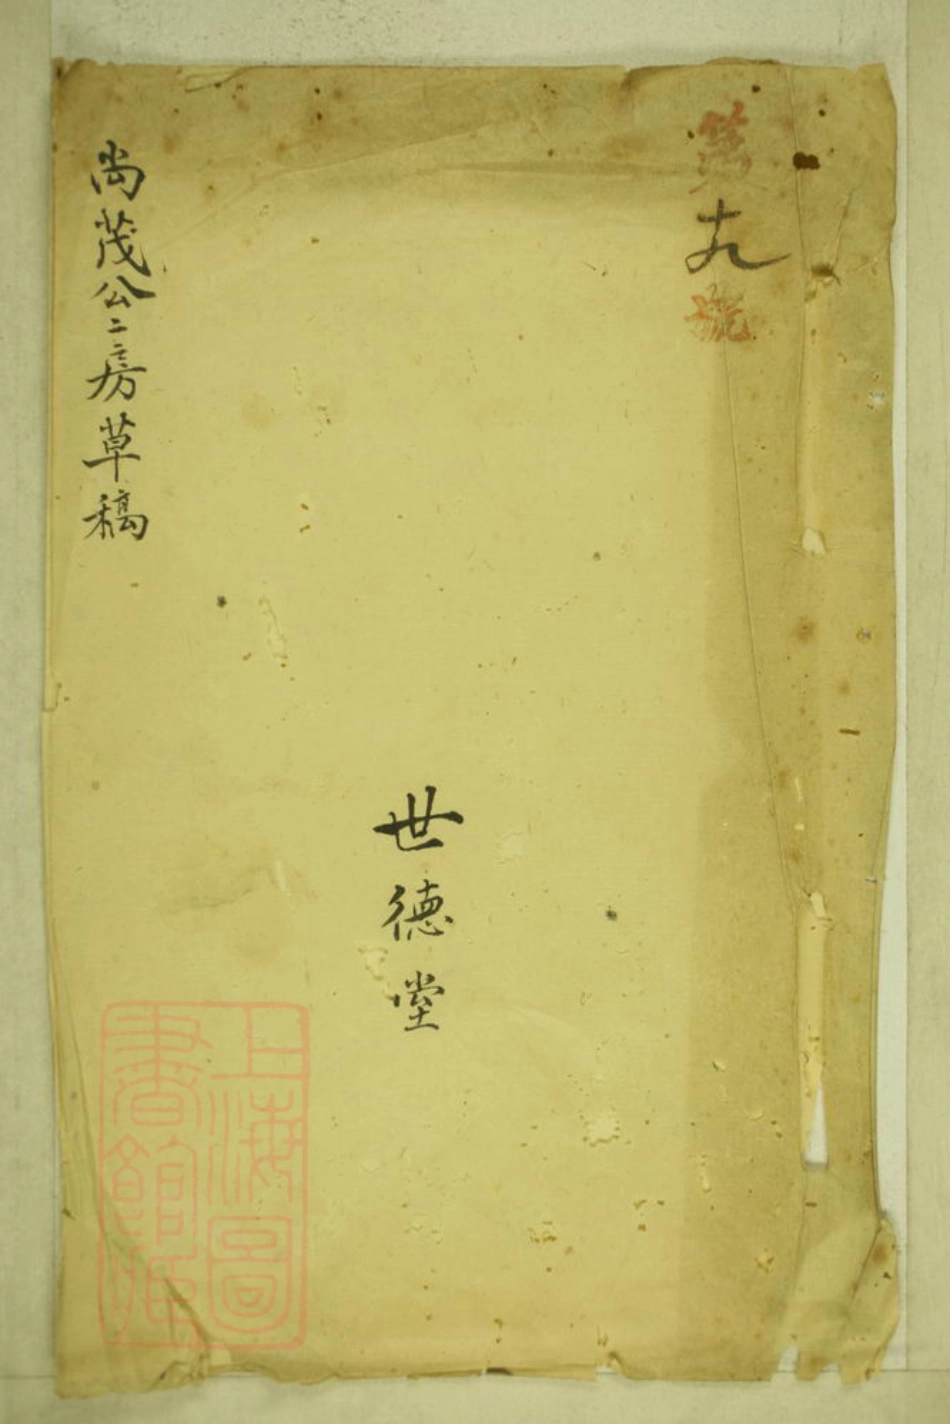 第十九號
世德堂
尚茂公二房草稿
上海圖
書館藏